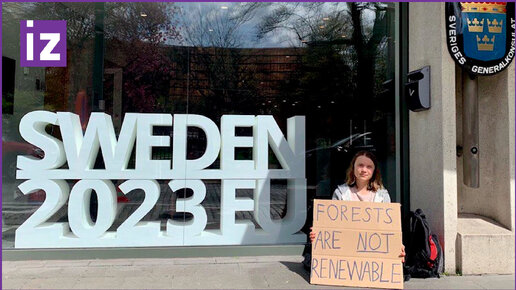 iz
SVERIGES GENERALKONSULAT
SWEDEN
2023EU
FORESTS
ARE NOT
RENEWABLE